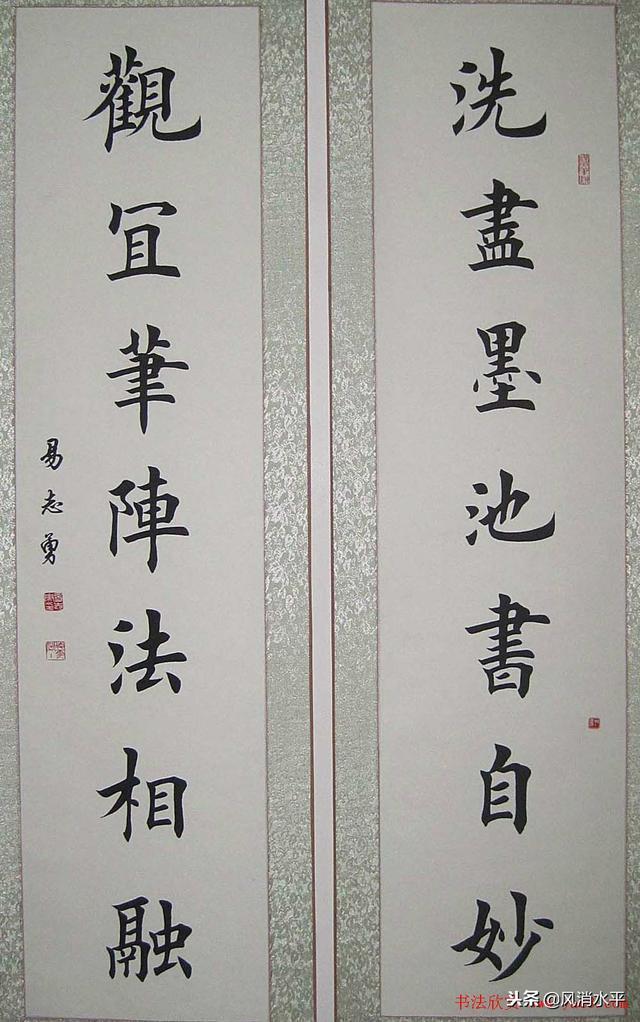 洗盡墨池書自妙
觀冝筆陣法相融
易志勇
书法欣
头条 @风消水平